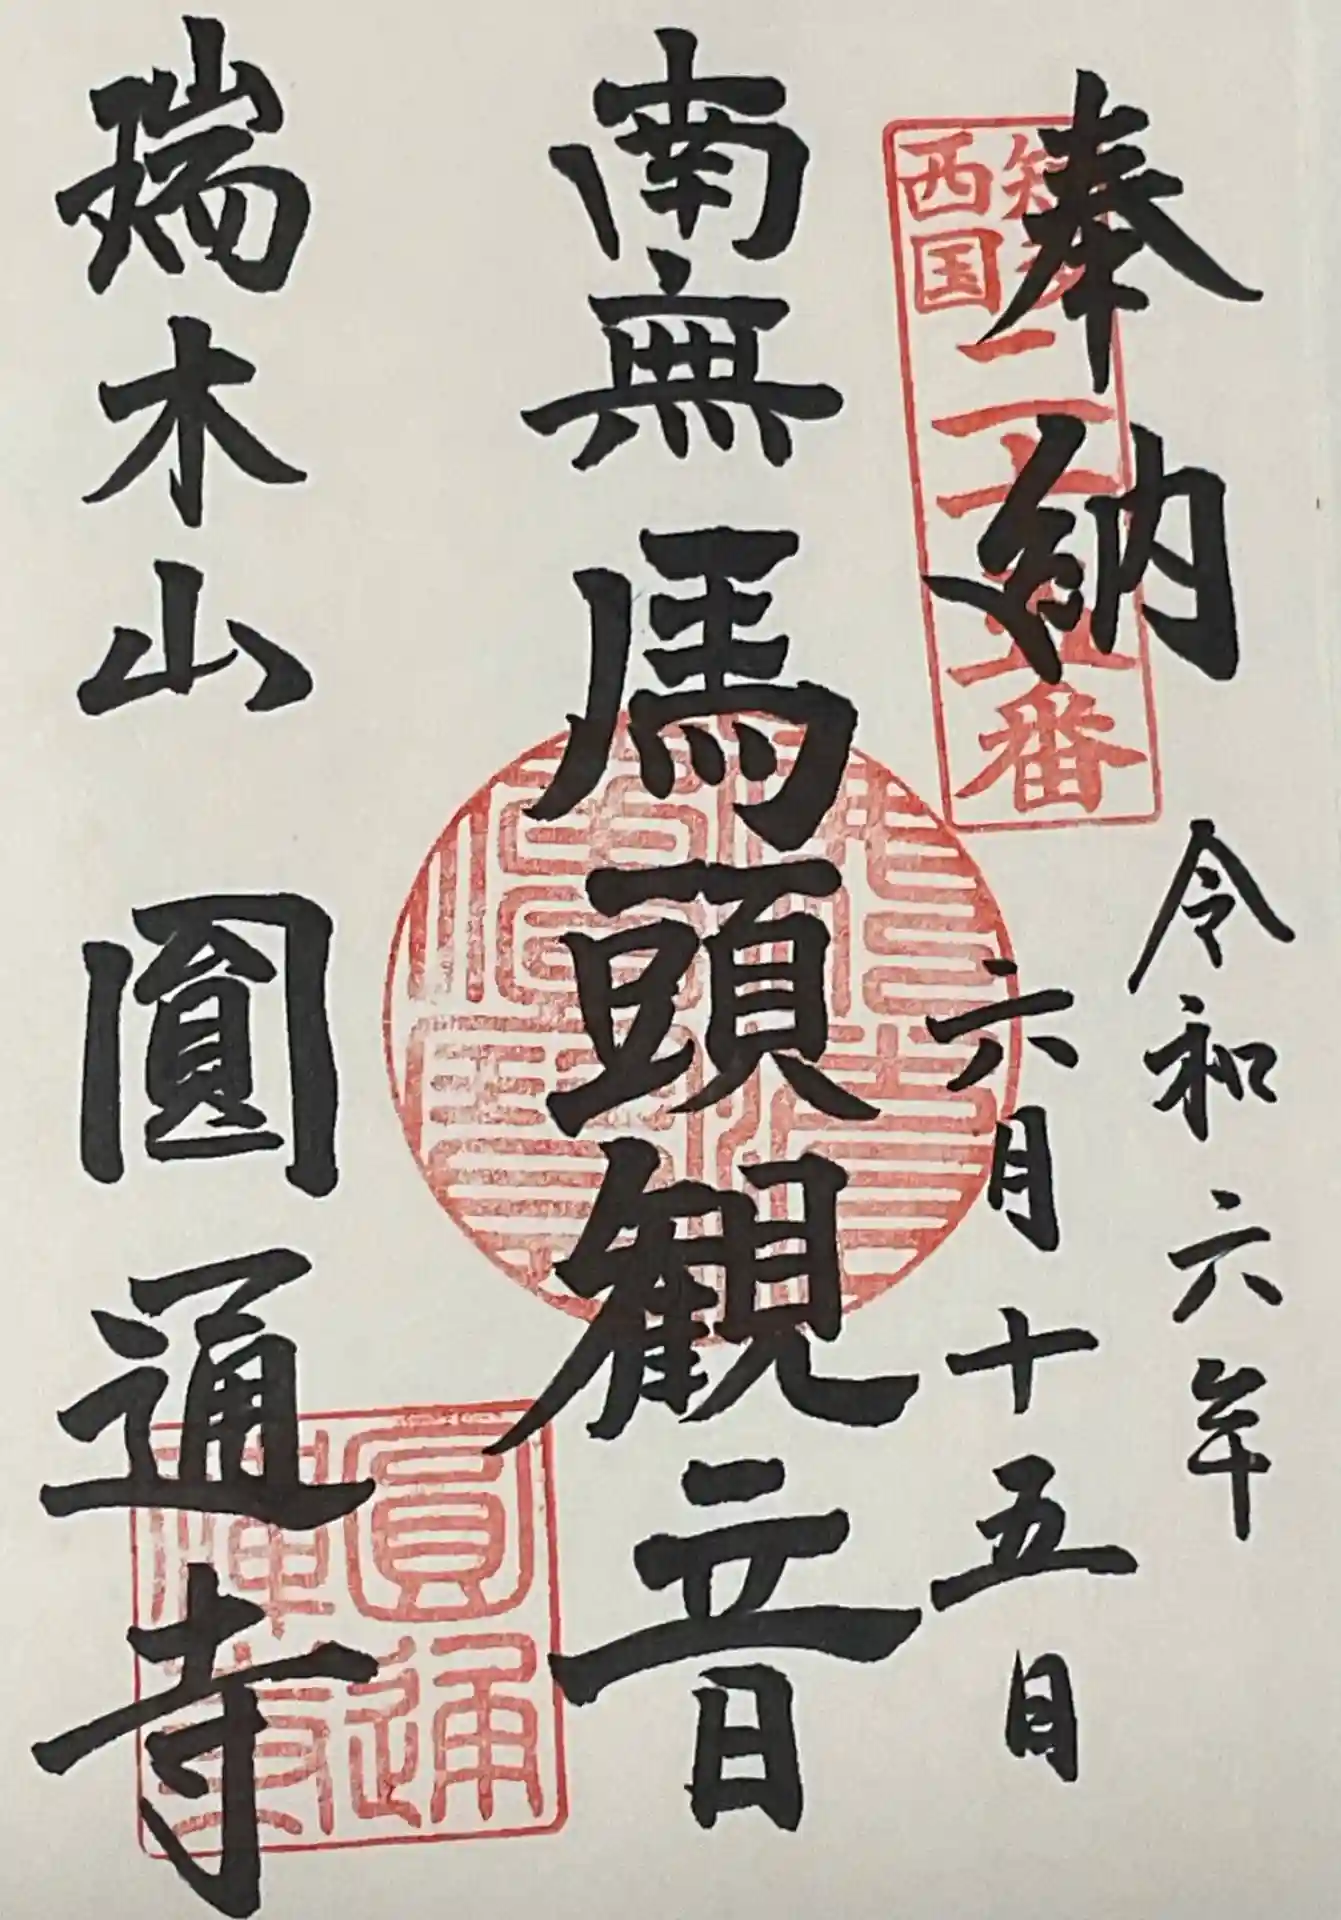 奉納
令和六年
六月十五日
知多
西国
二十五番
南無馬頭観音
瑞木山 圓通寺
圓通
禅寺